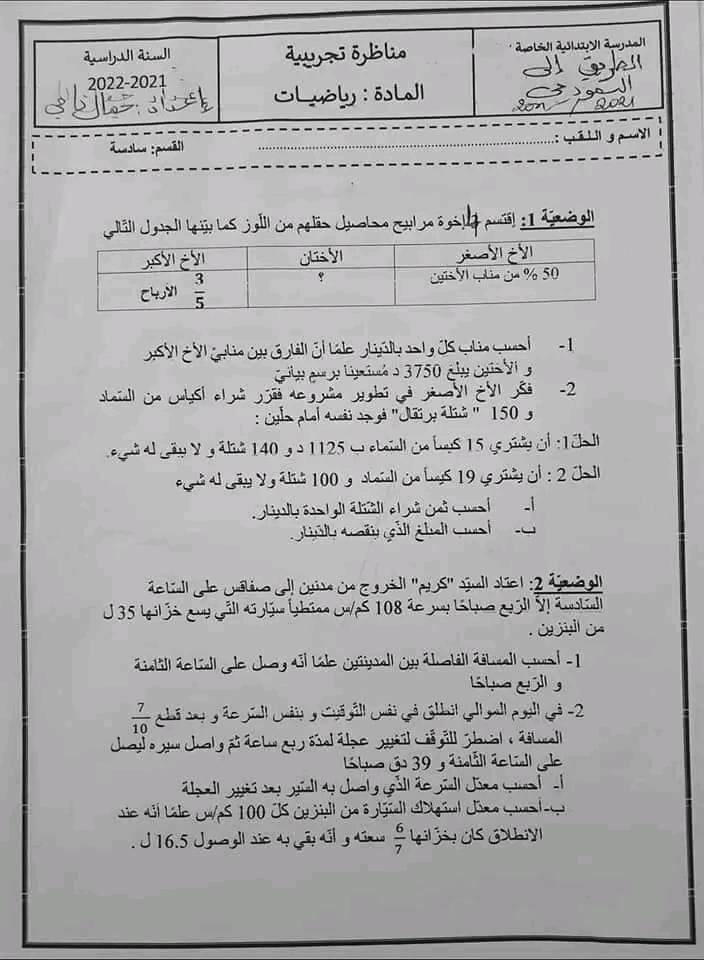 المدرسة الابتدائية الخاصة
الطريق إلى
النموذجي
2021
مناظرة تجريبية
المادة : رياضيات
السنة الدراسية
2022-2021
إعداد :
الاسم و اللقب :.......................................................... القسم: سادسة
الوضعيّة 1: إقتسم إخوة مرابيح محاصيل حقلهم من اللّوز كما بيّنها الجدول التّالي
الأخ الأصغر الأختان الأخ الأكبر
50 % من مناب الأختين ؟ 3/5 الأرباح
1- أحسب مناب كلّ واحد بالدّينار علمًا أنّ الفارق بين منابيْ الأخ الأكبر
و الأختين يبلغ 3750 د مُستعينا برسمٍ بيانيّ
2- فكّر الأخ الأصغر في تطوير مشروعه فقرّر شراء أكياس من السّماد
و 150 " شتلة برتقال" فوجد نفسه أمام حلّين :
الحلّ1: أن يشتري 15 كيسأ من السّماء ب 1125 د و 140 شتلة و لا يبقى له شيء.
الحلّ 2 : أن يشتري 19 كيسأ من السّماد و 100 شتلة ولا يبقى له شيء
أ- أحسب ثمن شراء الشّتلة الواحدة بالدينار.
ب- أحسب المبلغ الذّي ينقصه بالدّينار.
الوضعيّة 2: اعتاد السيّد "كريم" الخروج من مدنين إلى صفاقس على السّاعة
السّادسة إلاّ الرّبع صباحًا بسرعة 108 كم/س ممتطيأ سيّارته التّي يسع خزّانها 35 ل
من البنزين .
1- أحسب المسافة الفاصلة بين المدينتين علمًا أنّه وصل على السّاعة الثامنة
و الرّبع صباحًا
2- في اليوم الموالي انطلق في نفس التّوقيت و بنفس السّرعة و بعد قطع 7/10
المسافة ، اضطرّ للتّوقّف لتغيير عجلة لمدّة ربع ساعة ثمّ واصل سيره ليصل
على السّاعة الثّامنة و 39 دق صباحًا
أ- أحسب معدّل السرعة الذّي واصل به السّير بعد تغيير العجلة
ب-أحسب معدّل استهلاك السّيّارة من البنزين كلّ 100 كم/س علمًا أنّه عند
الانطلاق كان بخزّانها 6/7 سعته و أنّه بقي به عند الوصول 16.5 ل .